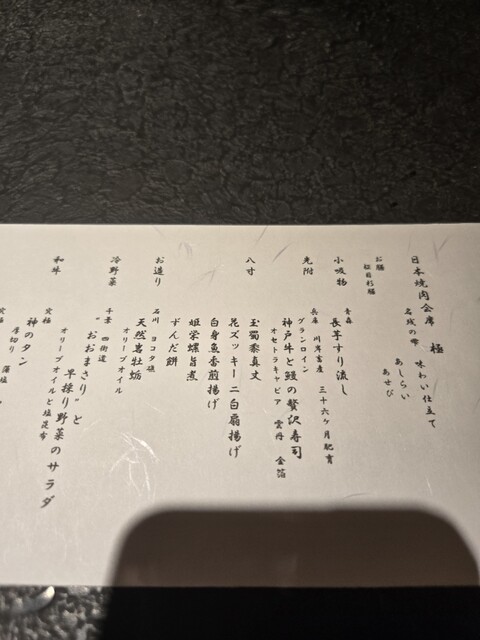 日本焼肉会席 極
味わい仕立て
名残の雫 あしらい あせび
お膳
小吸物
青森
長芋すり流し
先附
兵庫 川岸畜産 三十六ヶ月肥育
ブランロイン
神戸牛と鰻の贅沢寿司
オセトラキャビア 雲丹 金箔
八寸
玉蜀黍真丈
花ズッキーニ白扇揚げ
白身魚香煎揚げ
姫栄螺旨煮
ずんだ餅
お造り
石川 ヨコタ
天然岩牡蛎
オリーブオイル
冷野菜
千葉 四街道
"おおまさり"と
早採り野菜のサラダ
オリーブオイルと塩昆布
和牛
究極
神のタン
厚切り 藻塩
究極